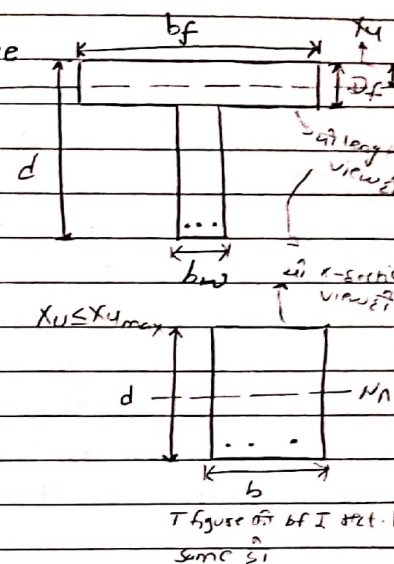 bf
xu
e
Df
d
long
view
...
bw
x-section
view
Xu≤Xumax
d
NA
...
b
T figure bf I sect.
same